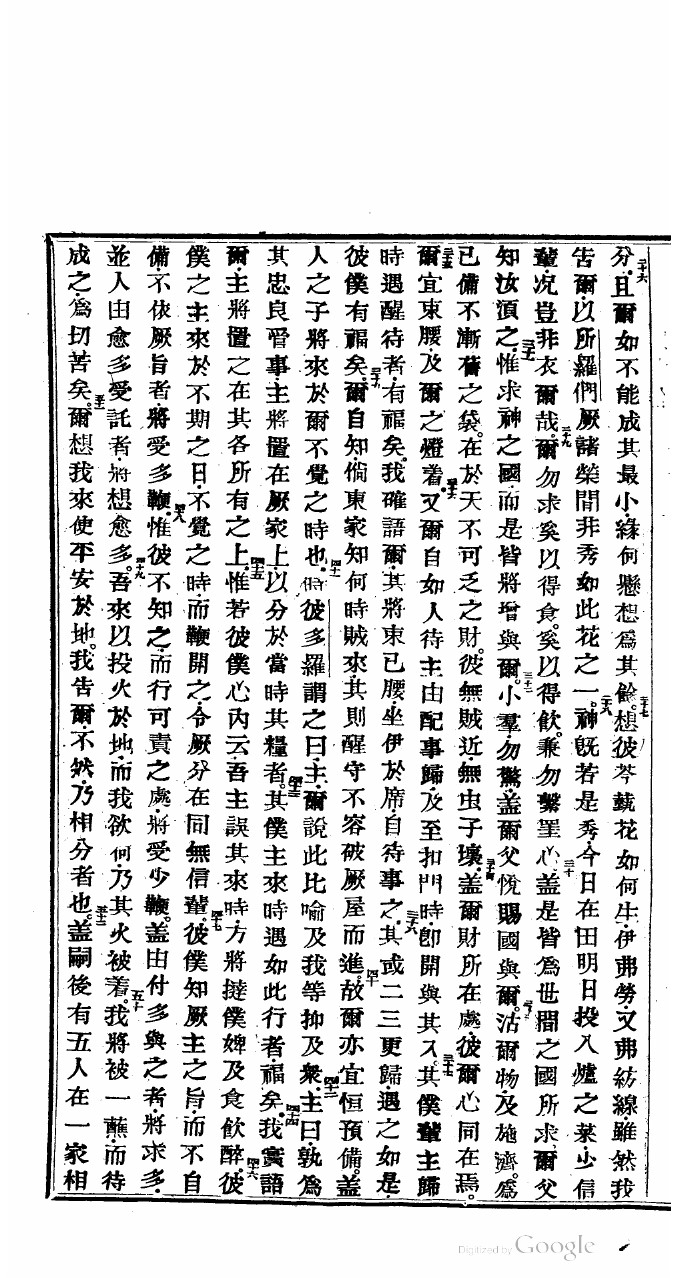 分·且爾如不能成其最小緣何懸想爲其餘。想彼芩蓺花如何生·伊弗勞·又弗紡線·雖然我
告爾·以所羅們厥諸榮間非秀如此花之一。神旣若是秀·今日在田明日投入爐之菜少信
輩·况豈非衣爾哉。爾勿求奚以得食·奚以得飲·兼勿繫罣心·盖是皆爲世間之國所求·爾父
知汝須之·惟求神之國而是皆將增與爾。小羣·勿驚·盖爾父悅賜國與爾。沽爾物及施濟·爲
已備不漸舊之袋·在於天不可乏之財·彼無賊近·無虫子壞·盖爾財所在處·彼爾心同在焉。
爾宜束腰·及爾之燈着·又爾自如人待主由配事歸·及至扣門時·卽開與其入其僕輩主歸
時遇醒待者·有福矣·我確語爾·其將束已腰·坐伊於席·自待事之·其或二三更歸·遇之如是·
彼僕有福矣·爾自知倘東家知何時賊來·其則醒守不容破厥屋而進。故爾亦宜恒預備·盖
人之子將來於爾不覺之時也。時彼多羅謂之曰·主·爾說此比喻及我等抑及衆·主曰·孰爲
其忠良管事·主將置在厥家上·以分於當時其糧者·其僕主來時遇如此行者·福矣·我實語
爾·主將置之在其各所有之上·惟若彼僕心內云·吾主誤其來時·方將撻僕婢及食飲醉·彼
僕之主來於不期之日·不覺之時·而鞭開之·令厥分在同無信輩·彼僕知厥主之旨·而不自
備·不依厥旨者·將受多鞭·惟彼不知之·而行可責之處·將受少鞭·盖由付多與之者·將求多·
並人由愈多受託者·將想愈多·吾來以投火於地·而我欲何·乃其火被着·我將被一蘸·而待
成之·爲切苦矣·爾想我來使平安於地·我告爾·不然·乃相分者也·盖嗣後有五人在一家相
Digitized by Google